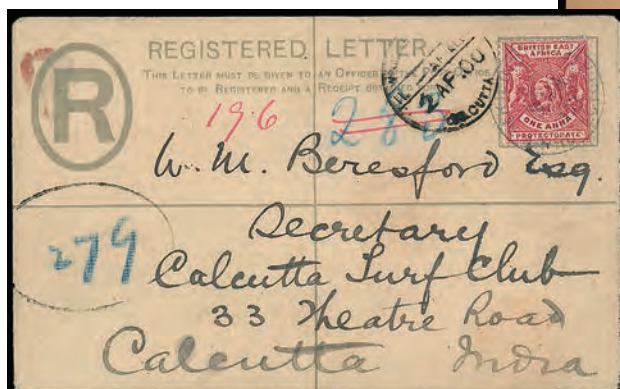 REGISTERED LETTER.
THIS LETTER MUST BE GIVEN TO AN OFFICER
TO BE REGISTERED AND A RECEIPT
R
2 AP.00
CALCUTTA
BRITISH EAST
AFRICA
ONE ANNA
PROTECTORATE
196
W. M. Beresford Esq.
Secretary
279
Calcutta Turf Club
33 Theatre Road
Calcutta India